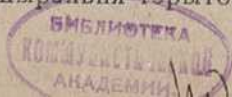 БИБЛИОТЕКА
КОММУНИСТИЧЕСКОЙ
АКАДЕМИИ